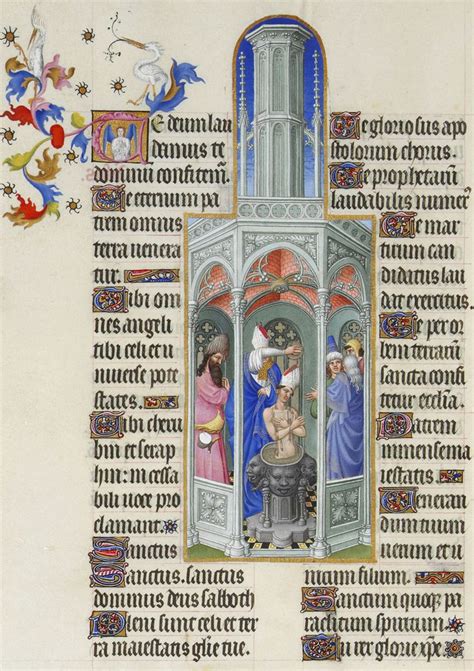 Te deum lau
damus te
dominū confitem̄.
Te eternum pa
trem omnis
terra uenera
tur.
Tibi om
nes angeli
tibi celi et u
niuerse pote
states.
Tibi cheru
bim et seraph
him: incessa
bili uoce pro
clamant.
Sanctus
Sanctus. sanctus
dominus deus sabboth
Pleni sunt celi et ter
ra maiestatis gl̄ie tue.
Te gloriosus apo
stolorum chorus.
Te prophetarum
laudabilis numer
Te mar
tirum can
didatus lau
dat exercitus.
Te per or
bem terrarum
sancta confi
tetur eccl̄ia.
Patrem
immense ma
iestatis.
Veneran
dum tuum
uerum et u
nicum filium.
Sanctum quoqꝫ pa
raclitum spiritum.
Tu rex glorie xp̄e.